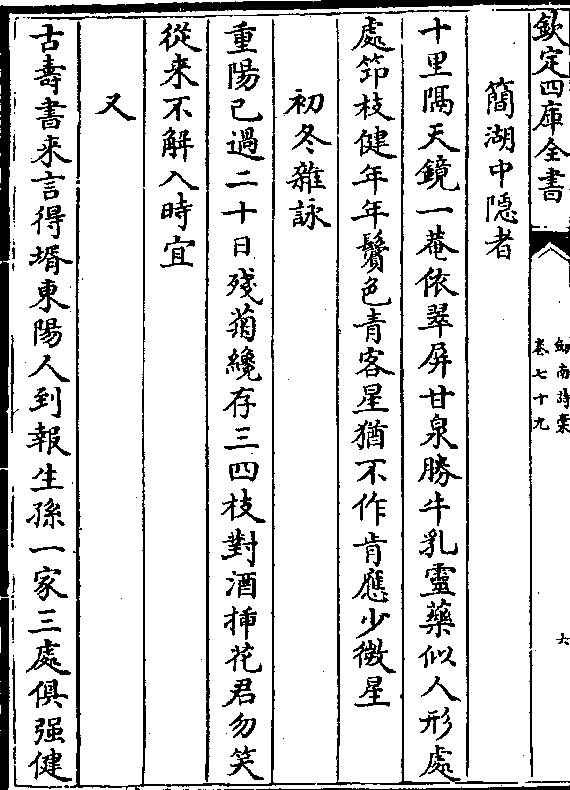 欽定四庫全書
劒南詩稾
卷七十九
六
簡湖中隱者
十里隔天鏡一菴依翠屏甘泉勝牛乳靈藥似人形處
處笻枝健年年鬢色青客星猶不作肯應少微星
初冬雜詠
重陽已過二十日殘菊纔存三四枝對酒挿花君勿笑
從來不解入時宜
又
古壽書來言得壻東陽人到報生孫一家三處俱强健